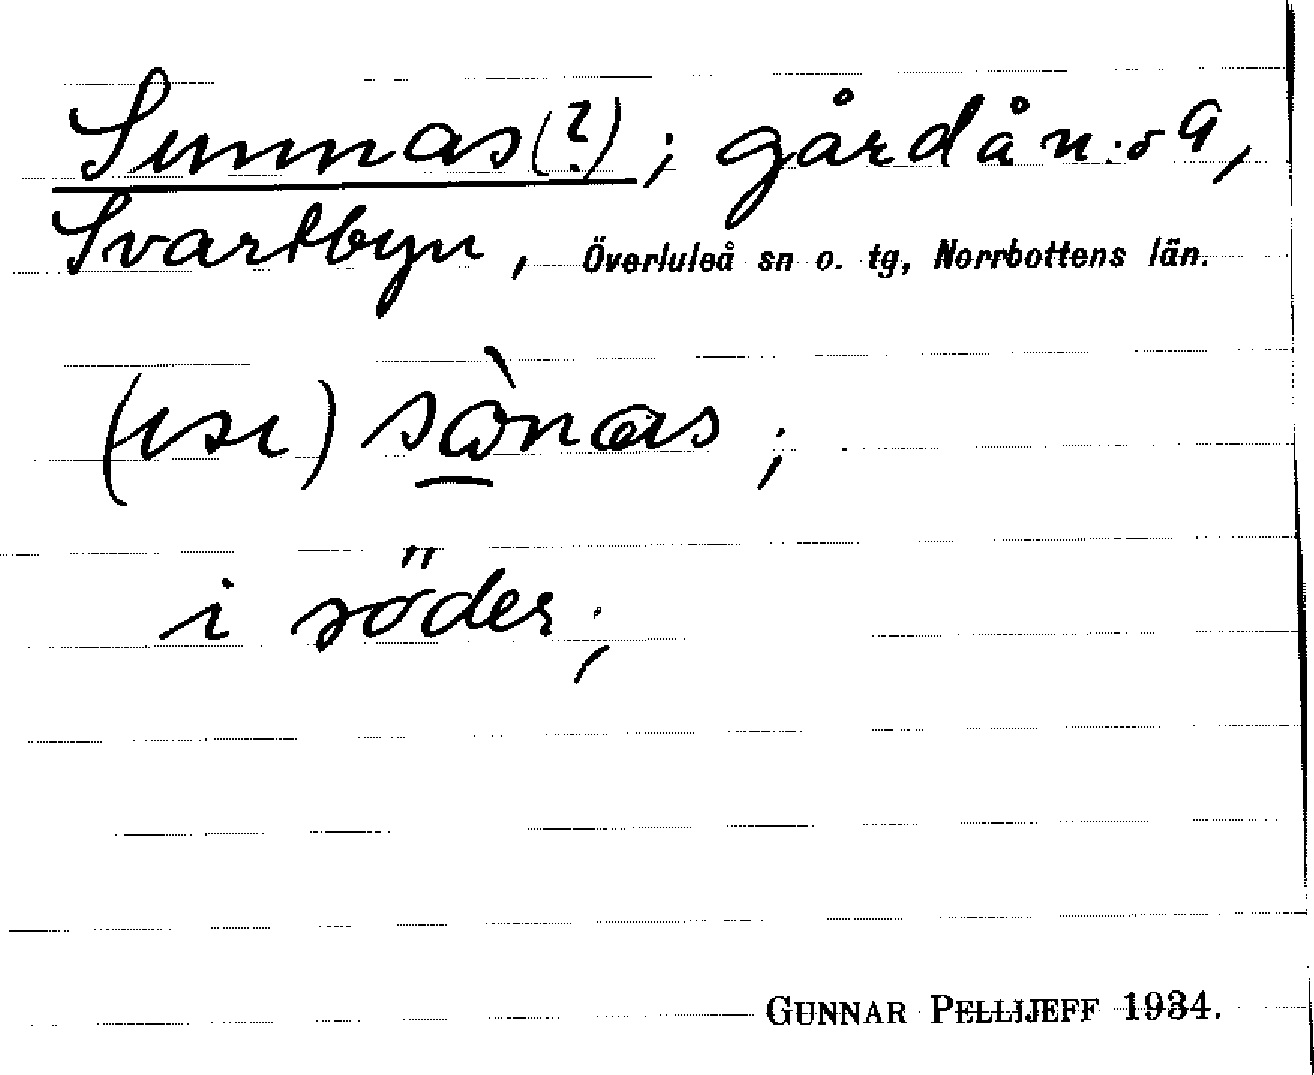 Sunnas(?); gård å n:o 9,
Svartbyn, Överluleå sn o. tg, Norrbottens län.
sὼnas;
i söder;
GUNNAR PELLIJEFF 1934.